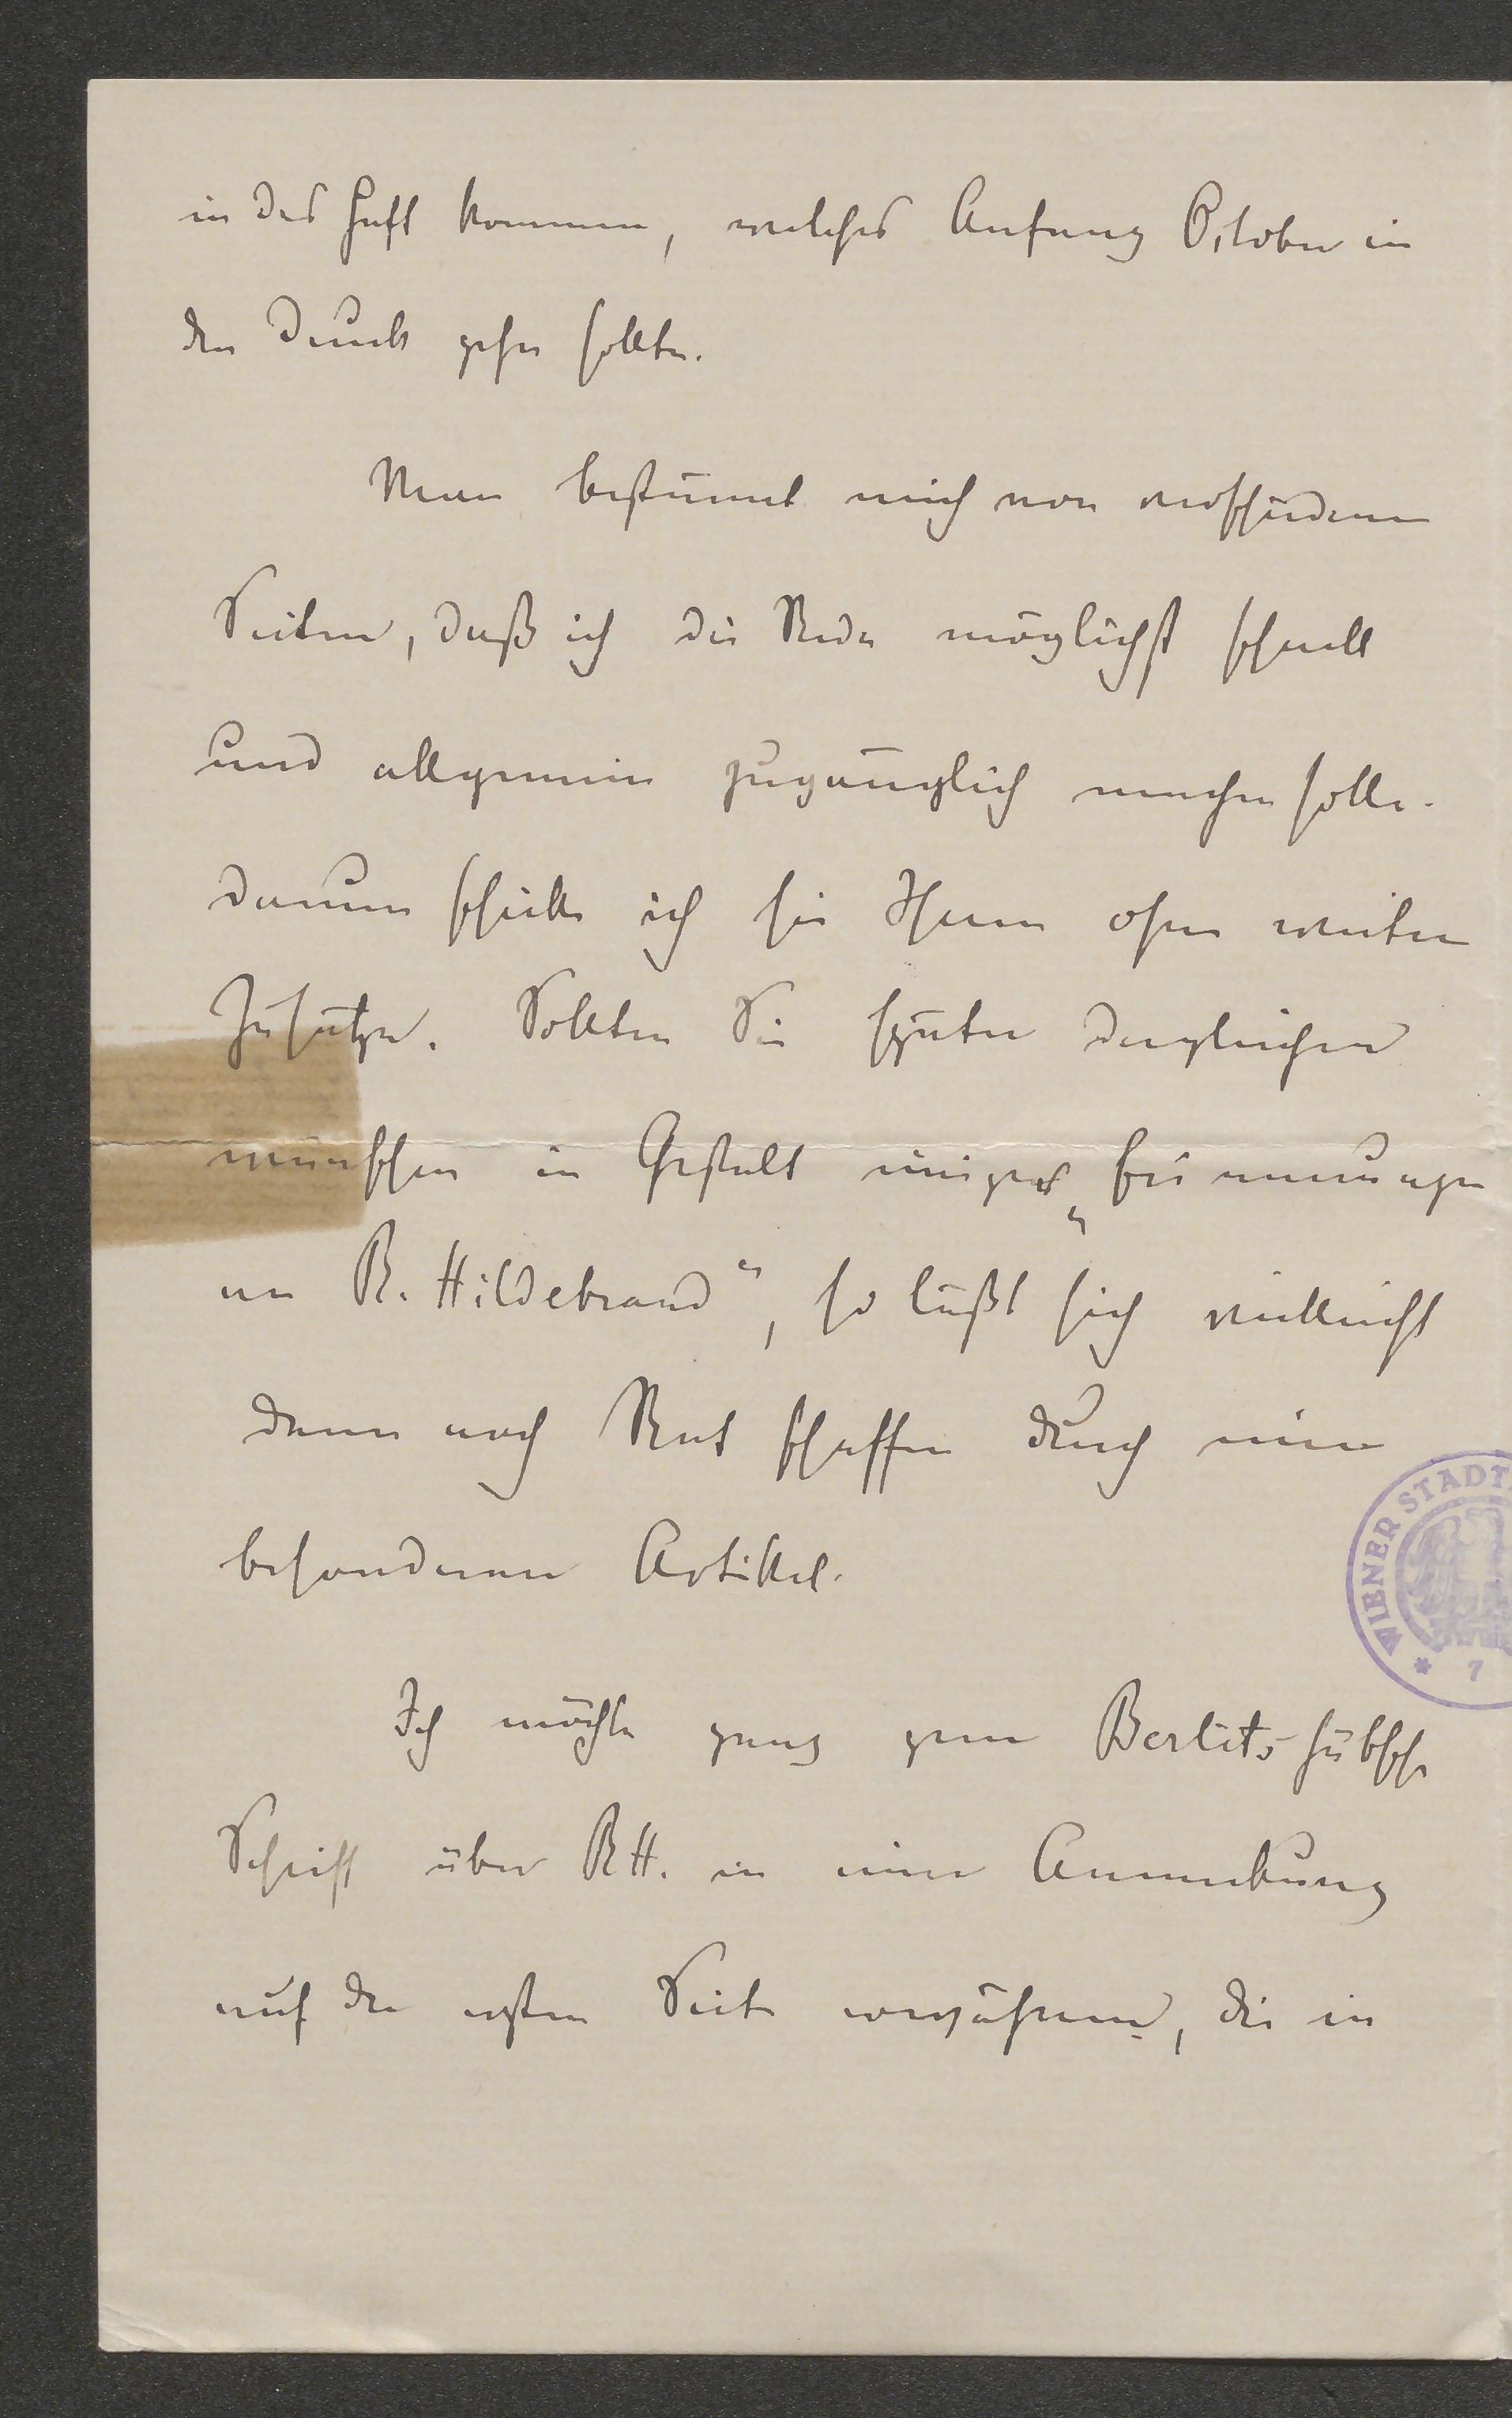 in das Heft kommen, welches Anfang October in
den Druck gehen sollte.
Man bestürmt mich von verschiedenen
Seiten, daß ich die Rede möglichst schnell
und allgemein zugänglich machen solle.
Darum schicke ich sie Ihnen ohne weitere
Zusätze. Sollten Sie später dergleichen
wünschen in Gestalt einiger „Erinnerungen
an R. Hildebrand“, so läßt sich vielleicht
dann noch Rat schaffen durch einen
besonderen Artikel.
Ich möchte ganz gern Berlits hübsche
Schrift über RH. in einer Anmerkung
auf der ersten Seite erwähnen, die in
WIENER STADT
* 7